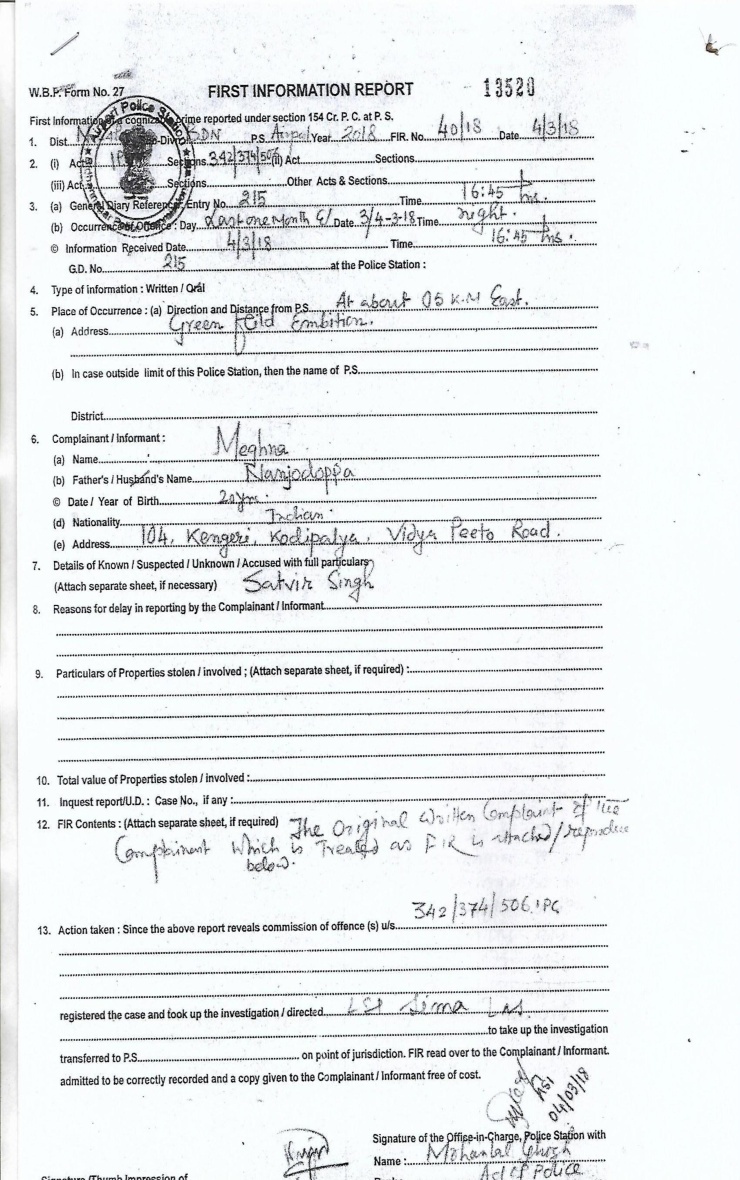 W.B.P. Form No. 27
FIRST INFORMATION REPORT
13520
First Information of a cognizable crime reported under section 154 Cr. P. C. at P. S.
1. Dist. Sub-Divn BDN P.S. Airport Year 2018 FIR. No. 40/18 Date 4/3/18
2. (i) Act IPC Sections 342/374/506 (ii) Act Sections
(iii) Act Sections Other Acts & Sections
3. (a) General Diary Reference: Entry No. 215 Time 16:45 hrs.
(b) Occurrence of Offence : Day Last one Month Date 3/4-3-18 Time night.
© Information Received Date 4/3/18 Time 16:45 hrs.
G.D. No. 215 at the Police Station :
4. Type of information : Written / Oral
5. Place of Occurrence : (a) Direction and Distance from P.S. At about 05 K.M East.
(a) Address Green Embition.
(b) In case outside limit of this Police Station, then the name of P.S.
District
6. Complainant / Informant :
(a) Name Meghna
(b) Father's / Husband's Name Nanjodappa
© Date / Year of Birth 20 yrs.
(d) Nationality Indian.
(e) Address 104, Kengeri, Kodipalya, Vidya Peeto Road.
7. Details of Known / Suspected / Unknown / Accused with full particulars
(Attach separate sheet, if necessary) Satvir Singh
8. Reasons for delay in reporting by the Complainant / Informant
9. Particulars of Properties stolen / involved ; (Attach separate sheet, if required) :
10. Total value of Properties stolen / involved :
11. Inquest report/U.D. : Case No., if any :
12. FIR Contents : (Attach separate sheet, if required) The Original written Complaint of the
Complainent which is Treated as FIR is attached/reproduce
below.
342/374/506 IPC
13. Action taken : Since the above report reveals commission of offence (s) u/s
registered the case and took up the investigation / directed LSI Sima
to take up the investigation
transferred to P.S. on point of jurisdiction. FIR read over to the Complainant / Informant.
admitted to be correctly recorded and a copy given to the Complainant / Informant free of cost.
ASI
04/03/18
Signature of the Office-in-Charge, Police Station with
Name : Mohanlal Ghosh
of Police
Signature /Thumb Impression of